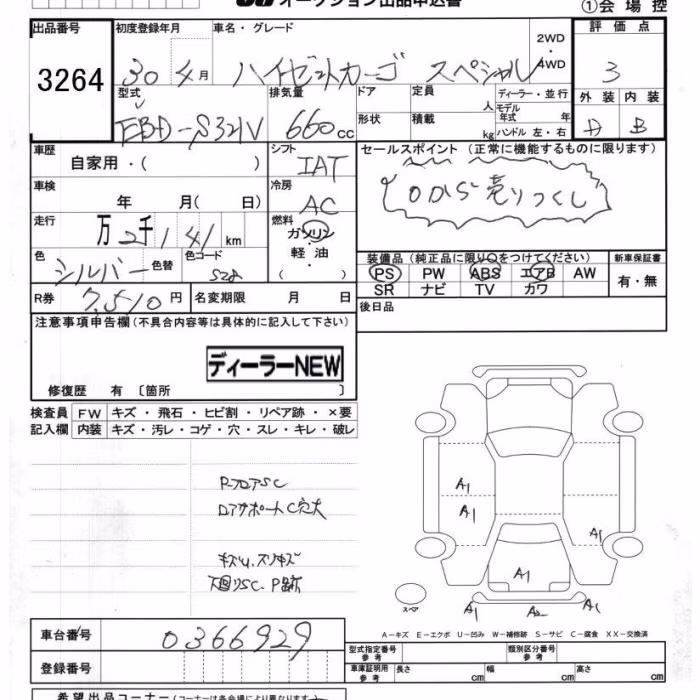 オークション出品申込書
①会場控
出品番号 初度登録年月 車名・グレード 2WD・4WD 評価点
3264 30 4月 ハイゼットカーゴ スペシャル 3
型式 排気量 ドア 定員 人 ディーラー・並行 外装 内装
EBD-S321V 660cc 形状 積載 kg モデル年式 年 ハンドル 左・右 A B
車歴 シフト セールスポイント (正常に機能するものに限ります)
自家用・( ) IAT
車検 冷房
年 月( 日) AC
走行 燃料
万 2千 141 km ガソリン・軽油・( )
色 色替 色コード 装備品 (純正品に限り○をつけてください) 新車保証書
シルバー S28 PS PW ABS エアB AW 有・無
SR ナビ TV カワ
R券 7,510円 名変期限 月 日 後日品
注意事項申告欄(不具合内容等は具体的に記入して下さい)
ディーラーNEW
修復歴 有〔箇所 〕
検査員 FW キズ・飛石・ヒビ割・リペア跡・×要
記入欄 内装 キズ・汚レ・コゲ・穴・スレ・キレ・破レ
RフロアSC
ロアサポートC穴大
キズU、スリキズ
下廻りSC、P跡
A1
A1
A1
A1
スペア A1 A2 A1
A-キズ E-エクボ U-凹み W-補修跡 S-サビ C-腐食 XX-交換済
車台番号 0366929
型式指定番号 参考 類別区分番号 参考
登録番号 車庫証明用 参考 長さ cm 幅 cm 高さ cm
希望出品コーナー(コーナーは各会場により異なります)